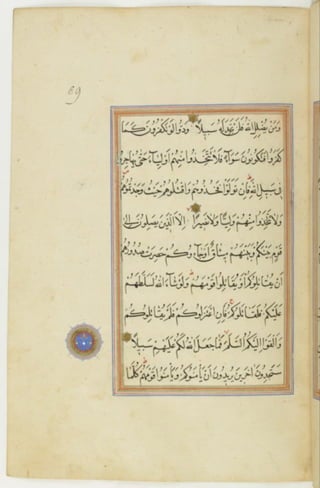 69
وَمَنْ يُضْلِلِ اللهُ فَلَنْ تَجِدَ لَهُ سَبِيلًا وَدُّوا لَوْ تَكْفُرُونَ كَمَا
كَفَرُوا فَتَكُونُونَ سَوَآءً فَلَا تَتَّخِذُوا مِنْهُمْ أَوْلِيَآءَ حَتَّى يُهَاجِرُوا
فِي سَبِيلِ اللهِ فَإِنْ تَوَلَّوْا فَخُذُوهُمْ وَاقْتُلُوهُمْ حَيْثُ وَجَدْتُمُوهُمْ
وَلَا تَتَّخِذُوا مِنْهُمْ وَلِيًّا وَلَا نَصِيرًا إِلَّا الَّذِينَ يَصِلُونَ إِلَى
قَوْمٍ بَيْنَكُمْ وَبَيْنَهُمْ مِيثَاقٌ أَوْ جَآءُوكُمْ حَصِرَتْ صُدُورُهُمْ
أَنْ يُقَاتِلُوكُمْ أَوْ يُقَاتِلُوا قَوْمَهُمْ وَلَوْ شَآءَ اللهُ لَسَلَّطَهُمْ
عَلَيْكُمْ فَلَقَاتَلُوكُمْ فَإِنِ اعْتَزَلُوكُمْ فَلَمْ يُقَاتِلُوكُمْ
وَأَلْقَوْا إِلَيْكُمُ السَّلَمَ فَمَا جَعَلَ اللهُ لَكُمْ عَلَيْهِمْ سَبِيلًا
سَتَجِدُونَ آخَرِينَ يُرِيدُونَ أَنْ يَأْمَنُوكُمْ وَيَأْمَنُوا قَوْمَهُمْ كُلَّمَا